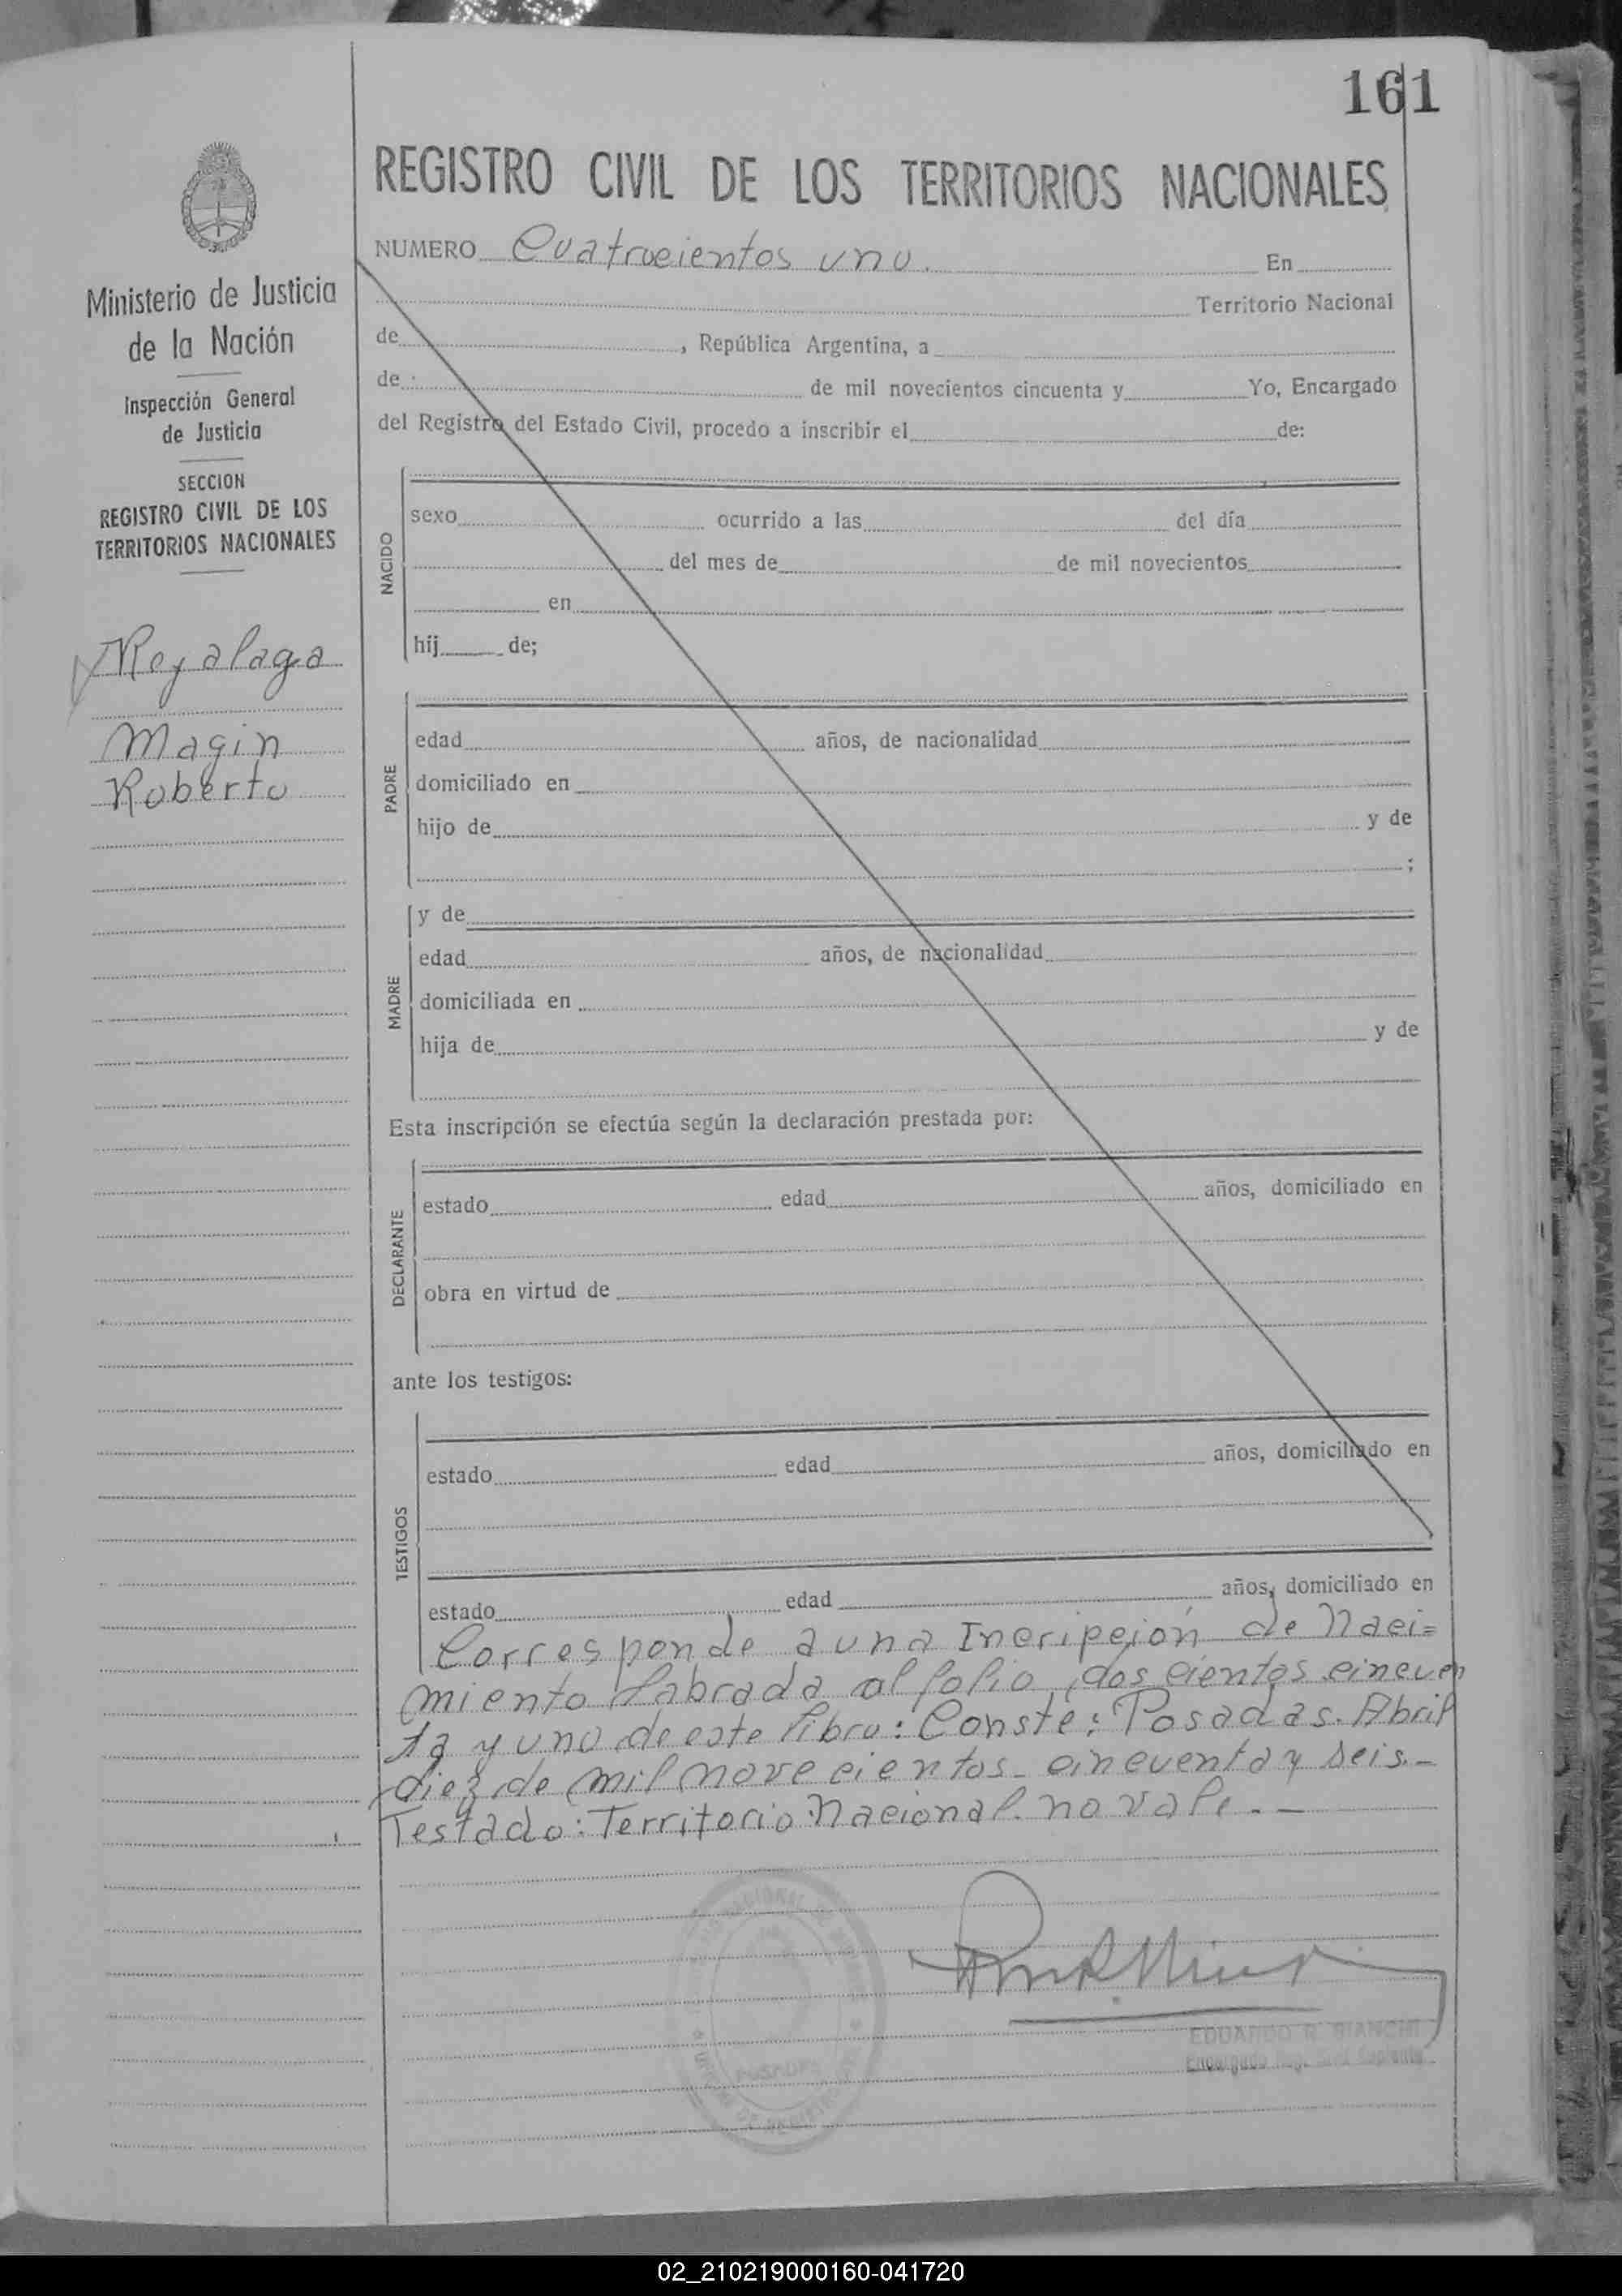 161
REGISTRO CIVIL DE LOS TERRITORIOS NACIONALES
Ministerio de Justicia
de la Nación
Inspección General
de Justicia
SECCION
REGISTRO CIVIL DE LOS
TERRITORIOS NACIONALES
Magin
Roberto
NUMERO Cuatrocientos uno. En
Territorio Nacional
de , República Argentina, a
de de mil novecientos cincuenta y Yo, Encargado
del Registro del Estado Civil, procedo a inscribir el de:
NACIDO
sexo ocurrido a las del día
del mes de de mil novecientos
en
hij de;
PADRE
edad años, de nacionalidad
domiciliado en
hijo de y de
;
MADRE
y de
edad años, de nacionalidad
domiciliada en
hija de y de
Esta inscripción se efectúa según la declaración prestada por:
DECLARANTE
estado edad años, domiciliado en
obra en virtud de
ante los testigos:
TESTIGOS
estado edad años, domiciliado en
estado edad años, domiciliado en
Corresponde a una Incripción de Naci=
miento labrada al folio dos cientos cincuen
ta y uno de este libro: Conste: Posadas. Abril
diez de mil nove cientos cincuenta y seis.-
Testado: Territorio Nacional. no vale.-
EDUARDO R. BIANCHI
Encargado Reg. Civil Suplente
POSADAS
02_210219000160-041720